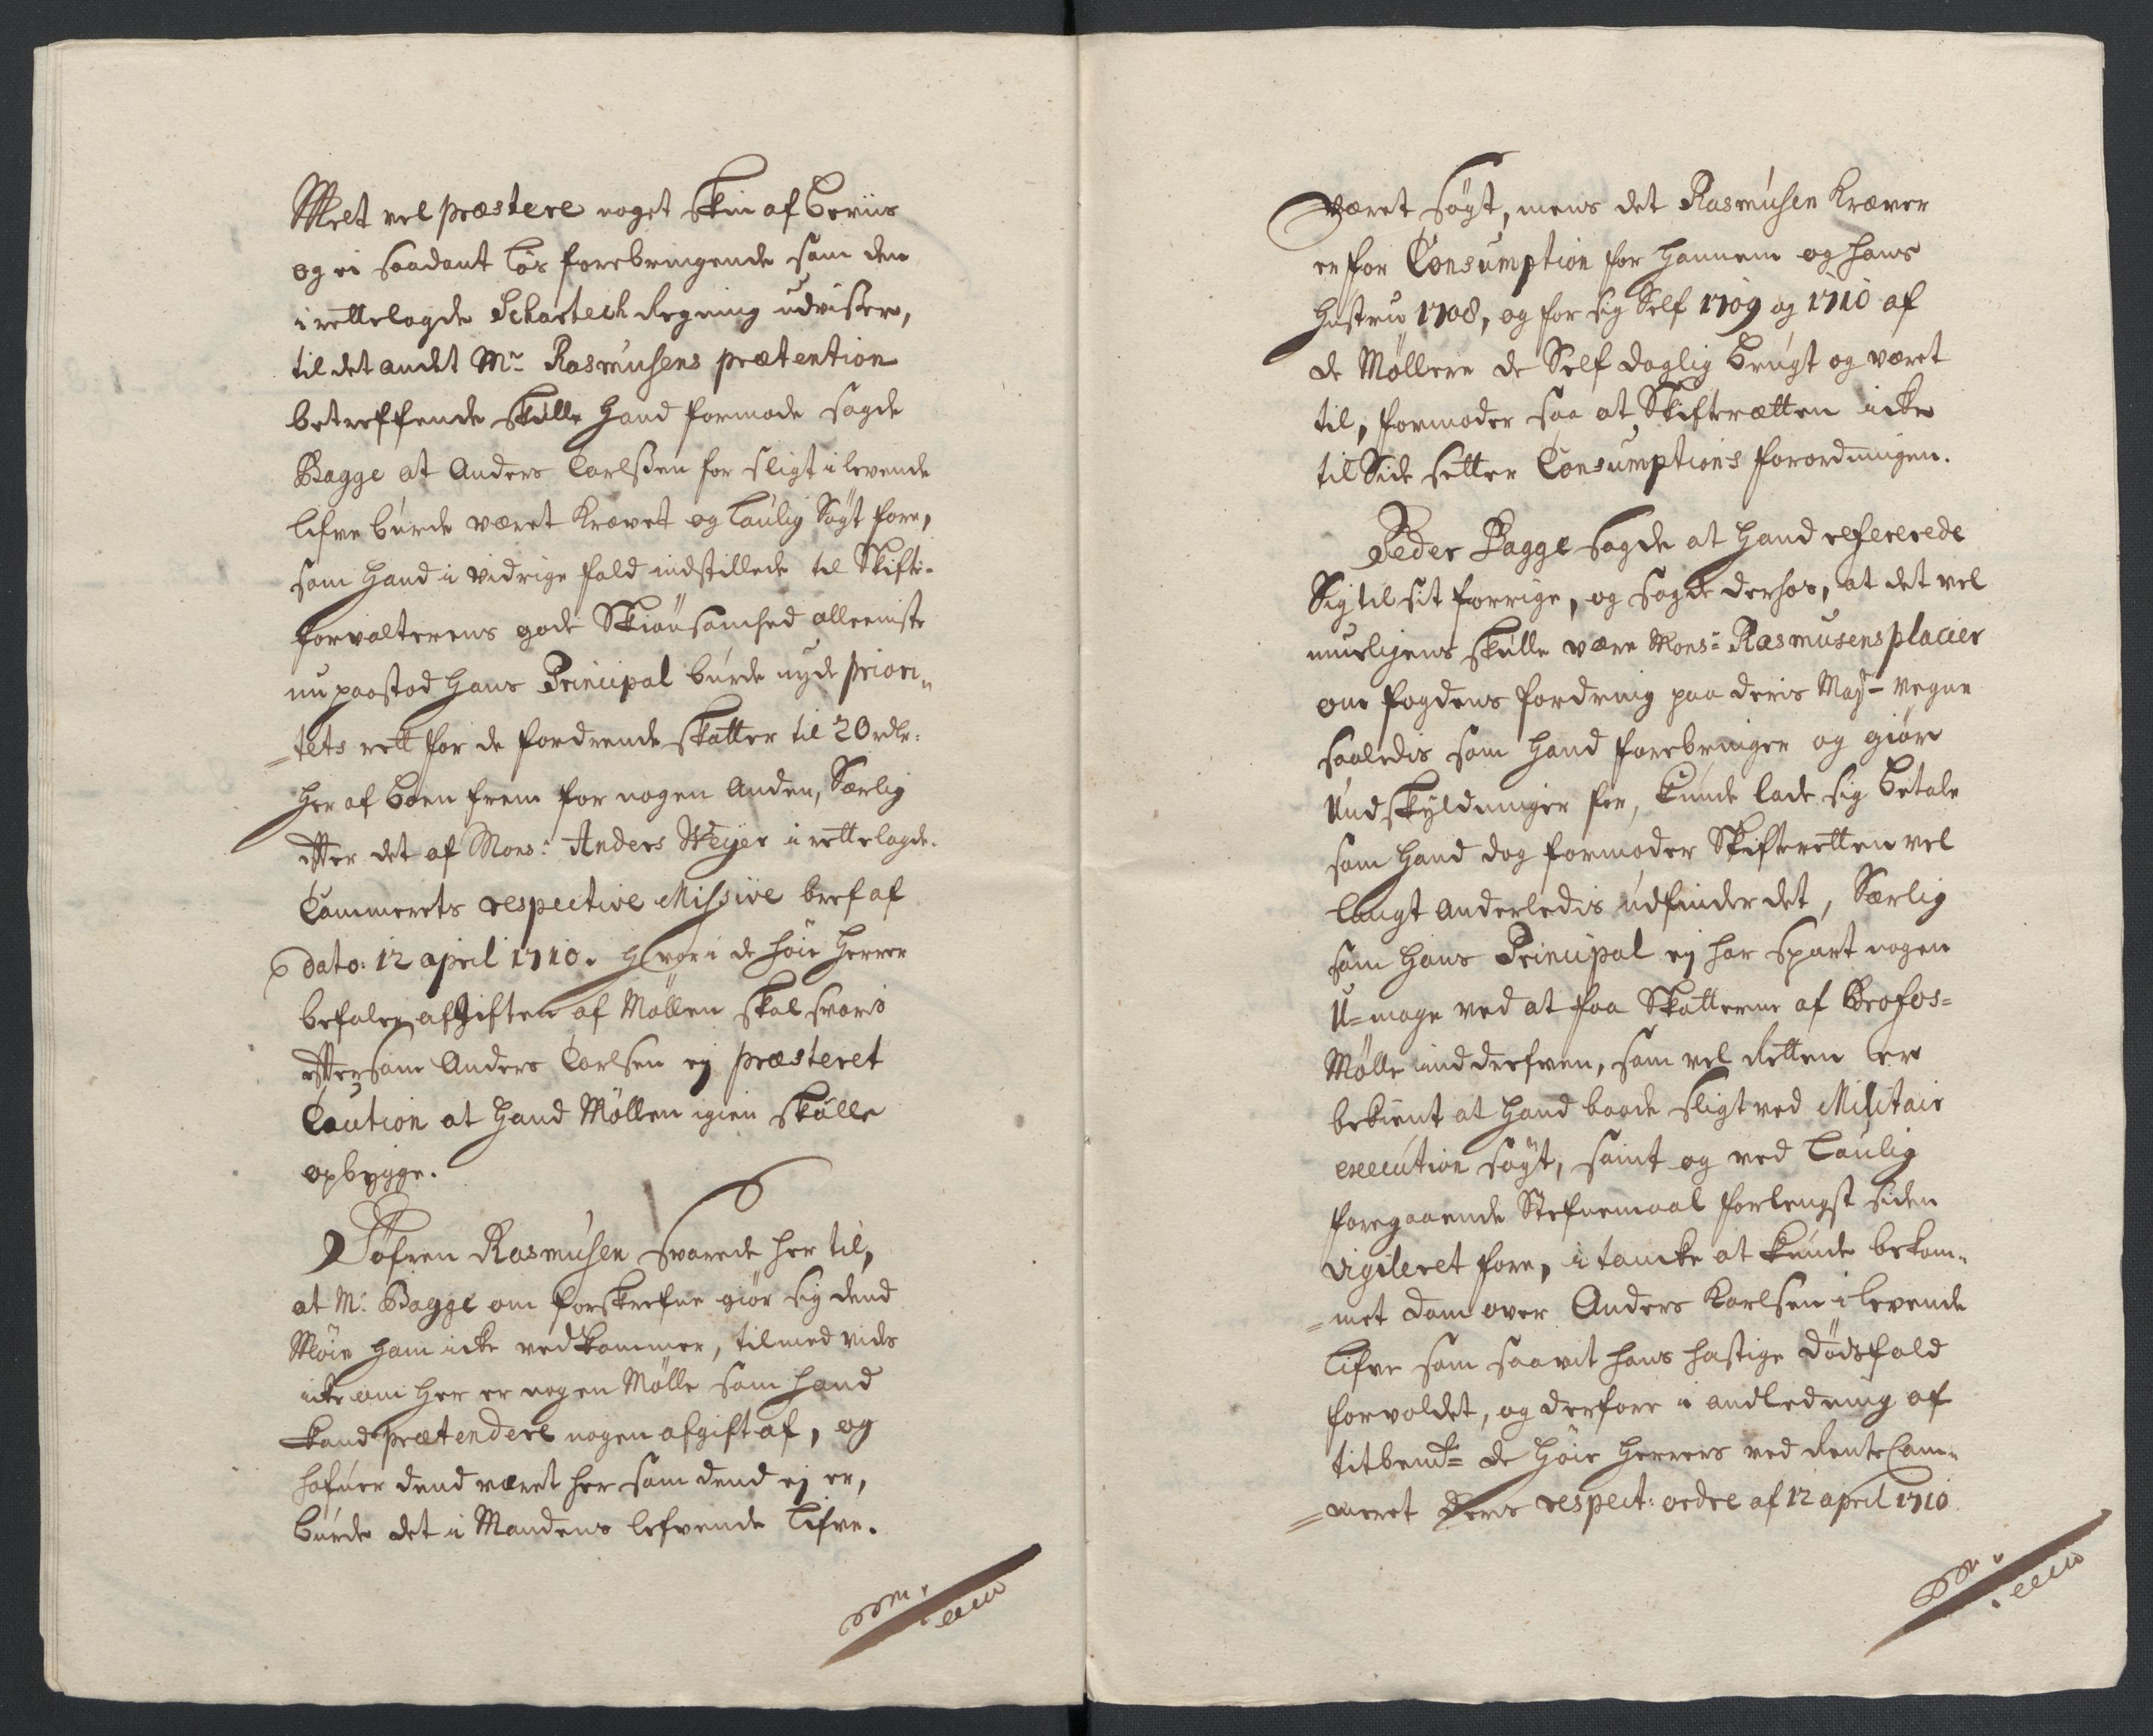 Melt vel præstere noget skin af beviis
og ei saadant løs forebringende som den
i rettelagde Schartech Regning udvisser,
til det andet Mr Rasmusens prætention
betreffende skulle hand formode sagde
Bagge at Anders Carlssen for sligt i levende
lifve burde været krævet og lavlig søgt fore,
som hand i vidrige fald indstillede til Skifte-
forvalterens gode Skiønsomhed alleeniste
nu paastod hans Principal burde nyde priori„
„tets rett for de fordrende skatter til 20 rdlr:
her af boen frem for nogen anden, Særlig
efter det af Mons: Anders Weyer i rettelagde
Cammerets respective Missive bref af
dato: 12 april 1710. hvor i de høie herrer
befaler afgiften af Møllen skal svaris
eftersom Anders Carlsen ej præsteret
Caution at hand Møllen igien skulle
opbygge.
Søfren Rasmusen svarede her til,
at Mr Bagge om forskrefne giør sig dend
Møie ham icke vedkommer, tilmed vides
icke om her er nogen Mølle som hand
kand prætendere nogen afgift af, og
hafver dend været her som dend ej er,
burde det i Mandens lefvende lifve.
været søgt, mens det Rasmusen kræver
er for Consumption for hannem og hans
hustru 1708, og for sig Self 1709 og 1710 af
de Møllere de Self daglig brugt og været
til, formoder saa at Skifteretten icke
til Side setter Consumptions forordningen.
Peder Bagge sagde at hand refererede
Sig til sit forrige, og sagde derhos, at det vel
mueligens skulle være Mons: Rasmusens placier
om fogdens fordring paa deris Mayt- vegne
saaledis som hand forebringer og giør
Undskyldninger for, kunde lade sig betale
som hand dog formoder Skifteretten vel
langt anderledis udfinder det, Særlig
som hans Principal ej har spart nogen
U=mage ved at faa Skatterne af Brofos=
Mølle inddrefven, som vel Retten er
bekient at hand baade sligt ved Militair
execution søgt, samt og ved lavlig
foregaaende Stefnemaal forlengst siden
vigileret fore, i tancke at kunde bekom„
„met dom over Anders Karlsen i levende
lifve som saavit hans hastige dødsfald
forvoldet, og derfore i andledning af
titbemte de høie herrers ved Rente Cam„
„meret deres respect: ordre af 12 april 1710